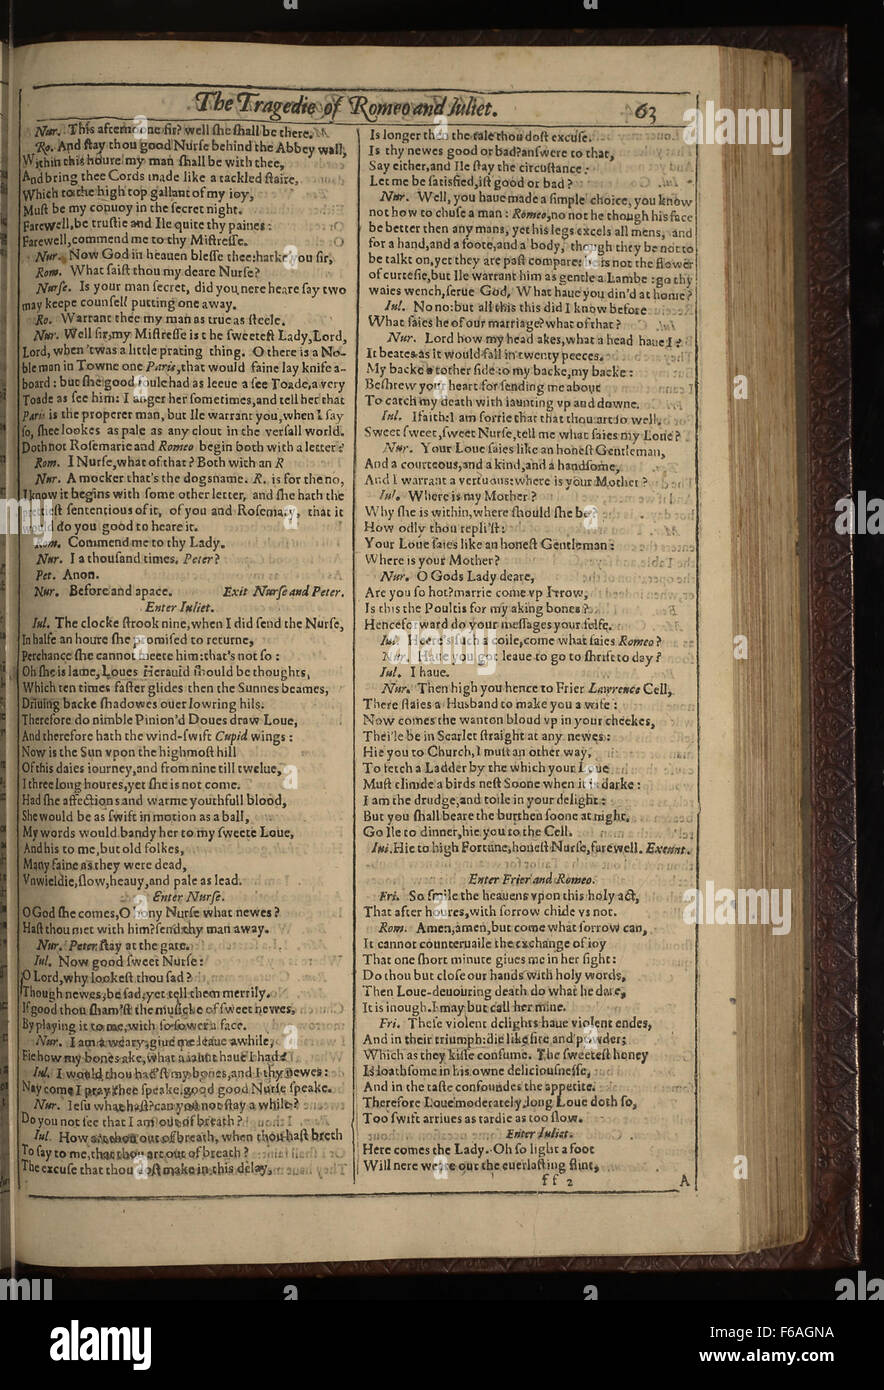 The Tragedie of Romeo and Iuliet. 63
Nur. This afternoone sir? well she shall be there.
Ro. And stay thou good Nurse behind the Abbey wall,
Within this houre my man shall be with thee,
And bring thee Cords made like a tackled staire,
Which to the high top gallant of my ioy,
Must be my conuoy in the secret night.
Farewell, be trustie and Ile quite thy paines:
Farewell, commend me to thy Mistresse.
Nur. Now God in heauen blesse thee: harke you sir,
Rom. What saist thou my deare Nurse?
Nurse. Is your man secret, did you nere heare say two
may keepe counsell putting one away.
Ro. Warrant thee my man as true as steele.
Nur. Well sir, my Mistresse is the sweetest Lady, Lord,
Lord, when 'twas a little prating thing. O there is a No-
ble man in Towne one Paris, that would faine lay knife a-
board: but she good soule had as leeue a see Toade, a very
Toade as see him: I anger her sometimes, and tell her that
Paris is the properer man, but Ile warrant you, when I say
so, shee lookes as pale as any clout in the versall world.
Doth not Rosemarie and Romeo begin both with a letter?
Rom. I Nurse, what of that? Both with an R
Nur. A mocker that's the dogsname. R. is for the no,
I know it begins with some other letter, and she hath the
prettiest sententious of it, of you and Rosemary, that it
would do you good to heare it.
Rom. Commend me to thy Lady.
Nur. I a thousand times. Peter?
Pet. Anon.
Nur. Before and apace. Exit Nurse and Peter.
Enter Iuliet.
Iul. The clocke strook nine, when I did send the Nurse,
In halfe an houre she promised to returne,
Perchance she cannot meete him: that's not so:
Oh she is lame, Loues Herauld should be thoughts,
Which ten times faster glides then the Sunnes beames,
Driuing backe shadowes ouer lowring hils.
Therefore do nimble Pinion'd Doues draw Loue,
And therefore hath the wind-swift Cupid wings:
Now is the Sun vpon the highmost hill
Of this daies iourney, and from nine till twelue,
I three long houres, yet she is not come.
Had she affections and warme youthfull blood,
She would be as swift in motion as a ball,
My words would bandy her to my sweete Loue,
And his to me, but old folkes,
Many faine as they were dead,
Vnwieldie, slow, heauy, and pale as lead.
Enter Nurse.
O God she comes, O hony Nurse what newes?
Hast thou met with him? send thy man away.
Nur. Peter stay at the gate.
Iul. Now good sweet Nurse:
O Lord, why lookest thou sad?
Though newes, be sad, yet tell them merrily.
If good thou sham'st the musicke of sweet newes,
By playing it to me, with so sower a face.
Nur. I am a weary, giue me leaue awhile,
Fie how my bones ake, what a iaunt haue I had?
Iul. I would thou had'st my bones, and I thy newes:
Nay come I pray thee speake, good good Nurse speake.
Nur. Iesu what hast? can you not stay a while?
Do you not see that I am out of breath?
Iul. How art thou out of breath, when thou hast breth
To say to me, that thou art out of breath?
The excuse that thou dost make in this delay,
Is longer then the tale thou dost excuse.
Is thy newes good or bad? answere to that,
Say either, and Ile stay the circustance:
Let me be satisfied, ist good or bad?
Nur. Well, you haue made a simple choice, you know
not how to chuse a man: Romeo, no not he though his face
be better then any mans, yet his legs excels all mens, and
for a hand, and a foote, and a body, though they be not to
be talkt on, yet they are past compare: he is not the flower
of curtesie, but Ile warrant him as gentle a Lambe: go thy
waies wench, serue God. What haue you din'd at home?
Iul. No no: but all this this did I know before
What saies he of our marriage? what of that?
Nur. Lord how my head akes, what a head haue I?
It beates as it would fall in twenty peeces.
My backe a tother side: o my backe, my backe:
Beshrew your heart for sending me about
To catch my death with iaunting vp and downe.
Iul. Ifaith: I am sorrie that that thou art so well.
Sweet sweet, sweet Nurse, tell me what saies my Loue?
Nur. Your Loue saies like an honest Gentleman,
And a courteous, and a kind, and a handsome,
And I warrant a vertuous: where is your Mother?
Iul. Where is my Mother?
Why she is within, where should she be?
How odly thou repli'st:
Your Loue saies like an honest Gentleman:
Where is your Mother?
Nur. O Gods Lady deare,
Are you so hot? marrie come vp I trow,
Is this the Poultis for my aking bones?
Henceforward do your messages your selfe.
Iul. Heere's such a coile, come what saies Romeo?
Nur. Haue you got leaue to go to shrift to day?
Iul. I haue.
Nur. Then high you hence to Frier Lawrence Cell,
There staies a Husband to make you a wife:
Now comes the wanton bloud vp in your cheekes,
Thei'le be in Scarlet straight at any newes:
Hie you to Church, I must an other way,
To fetch a Ladder by the which your Loue
Must climde a birds nest Soone when it is darke:
I am the drudge, and toile in your delight:
But you shall beare the burthen soone at night.
Go Ile to dinner, hie you to the Cell.
Iui. Hie to high Fortune, honest Nurse, farewell. Exeunt.
Enter Frier and Romeo.
Fri. So smile the heauens vpon this holy act,
That after houres, with sorrow chide vs not.
Rom. Amen, amen, but come what sorrow can,
It cannot counteruaile the exchange of ioy
That one short minute giues me in her sight:
Do thou but close our hands with holy words,
Then Loue-deuouring death do what he dare,
It is inough. I may but call her mine.
Fri. These violent delights haue violent endes,
And in their triumph: die like fire and powder;
Which as they kisse consume. The sweetest honey
Is loathsome in his owne deliciousnesse,
And in the taste confoundes the appetite.
Therefore Loue moderately, long Loue doth so,
Too swift arriues as tardie as too slow.
Enter Iuliet.
Here comes the Lady. Oh so light a foot
Will nere weare out the euerlasting flint,
ff 2 A
alamy stock photo
alamy
F6AGNA
www.alamy.com